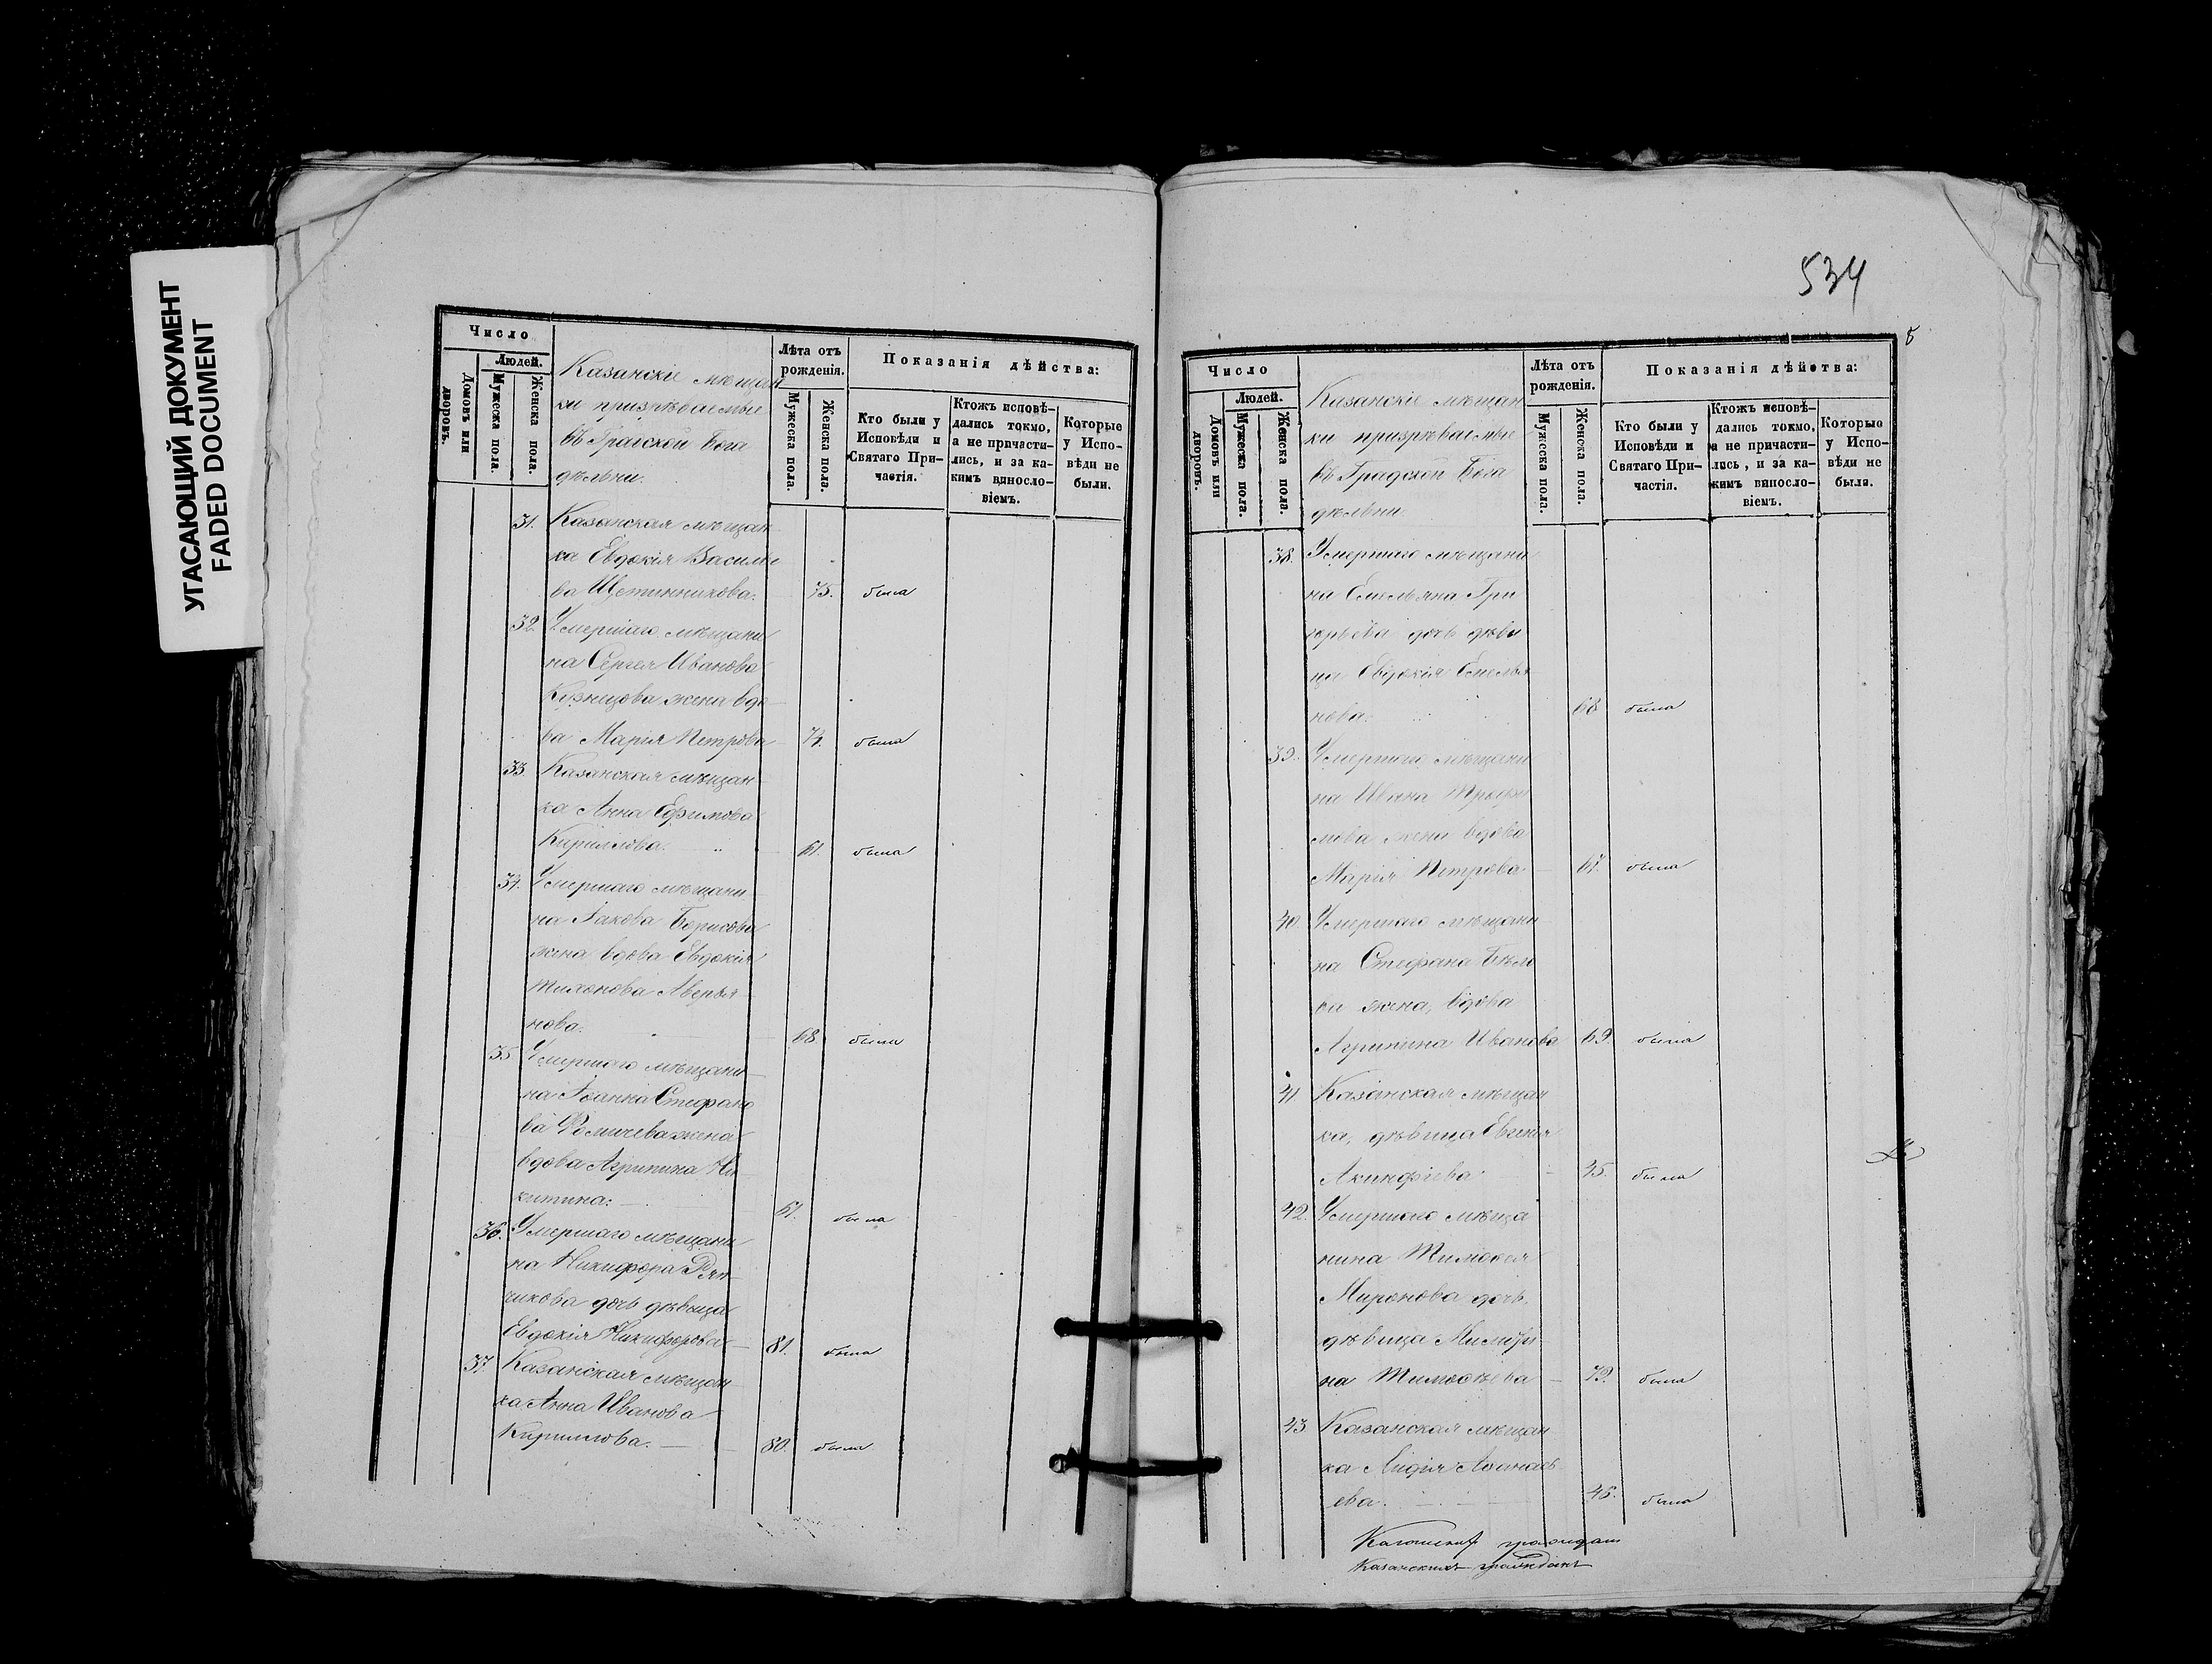 УГАСАЮЩИЙ ДОКУМЕНТ
FADED DOCUMENT
Число
Людей.
Домовъ или дворовъ.
Мужеска пола.
Женска пола.
Казанскіе мѣщан
ки призрѣваемые
въ Градской Бога
дѣльни.
Лѣта отъ
рожденія.
Мужеска пола.
Женска пола.
Показанія дѣйства:
Кто были у
Исповѣди и
Святаго При-
частія.
Ктожъ исповѣ-
дались токмо,
а не причасти-
лись, и за ка-
кимъ винносло-
віемъ.
Которые
у Испо-
вѣди не
были.
31. Казанская мѣщан
ка Евдокія Василье
ва Щетинникова. 75. была
32. Умершаго мѣщани
на Сергея Иванова
Кузнецова жена вдо
ва Марія Петрова 74. была
33. Казанская мѣщан-
ка Анна Ефимова
Кириллова. 61. была
34. Умершаго мѣщани-
на Іакова Борисова
жена вдова Евдокія
Тихонова Аверья-
нова. 68 была
35 Умершаго мѣщани-
на Іоанна Стефано
ва Фомичева жена
вдова Агрипина Ни-
китина: 61. была
36. Умершаго мѣщани
на Никифора Ряп-
чикова дочь дѣвица
Евдокія Никифорова 81. была
37. Казанская мѣщан-
ка Анна Иванова
Кириллова. 80. была
534
8
Число
Людей.
Домовъ или дворовъ.
Мужеска пола.
Женска пола.
Казанскіе мѣщан
ки призрѣваемые
въ Градской Бога
дѣльни.
Лѣта отъ
рожденія.
Мужеска пола.
Женска пола.
Показанія дѣйства:
Кто были у
Исповѣди и
Святаго При-
частія.
Ктожъ исповѣ-
дались токмо,
а не причасти-
лись, и за ка-
кимъ винносло-
віемъ.
Которые
у Испо-
вѣди не
были.
38. Умершаго мѣщани
на Емельяна Гри
горьева дочь дѣви
ца Евдокія Емелья
нова. 68 была
39. Умершаго мѣщани
на Ивана Трофи
мова жена вдова
Марія Петрова 67. была
40. Умершаго мѣщани
на Стефана Бѣло
ва жена, вдова
Агрипина Иванова 69. была
41 Казанская мѣщан
ка, дѣвица Евгенія
Акинфіева 45. была
42. Умершаго мѣща
нина Тимоѳея
Миронова дочь,
дѣвица
на Тимоѳѣева 72. была
43 Казанская мѣщан
ка Лидія Аѳанась
ева. 46. была
граждан
Казанскихъ гражданъ